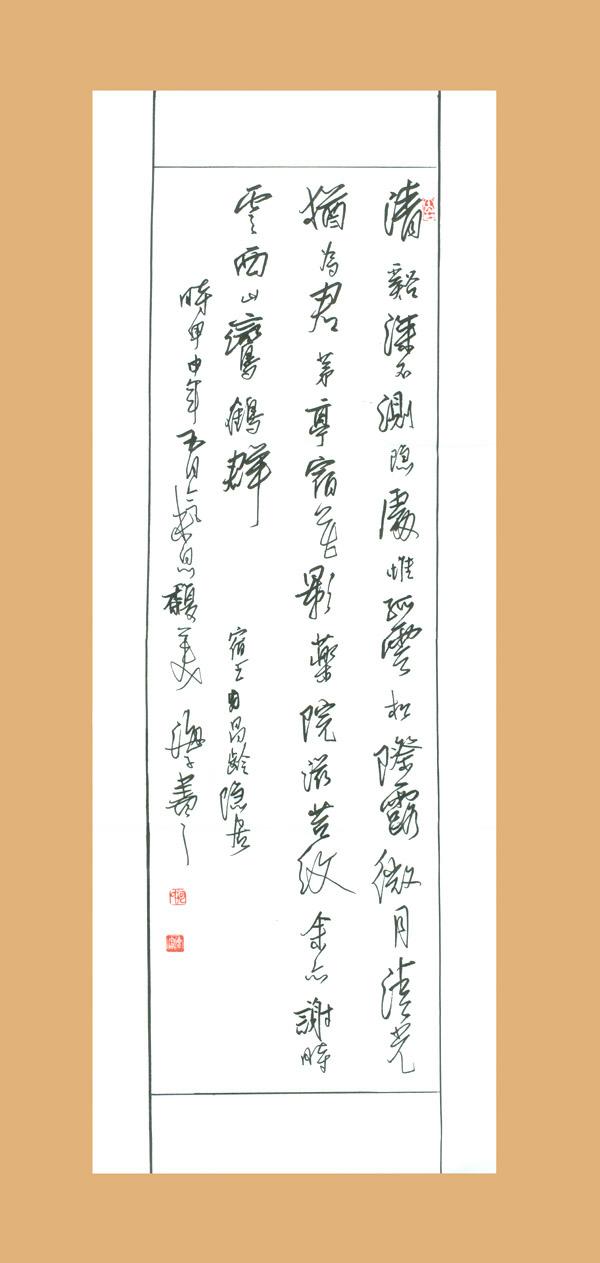 清谿深不測隐處惟孤雲松際露微月清光
猶為君茅亭宿花影藥院滋苔紋余亦謝時
雲西山鸞鶴群
宿王昌齡隐居
時甲申年五月 書